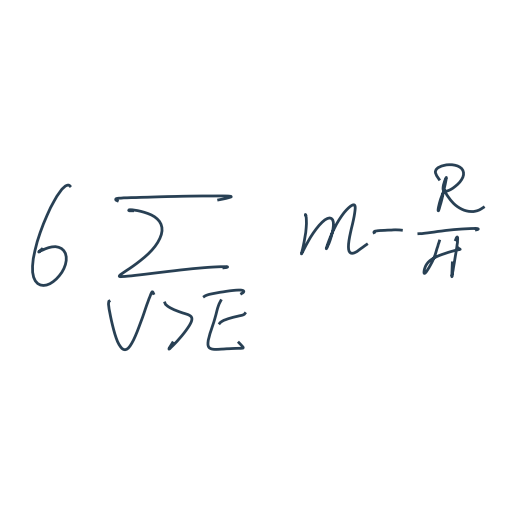 6 \sum_{V > E} m - \frac{R}{H}